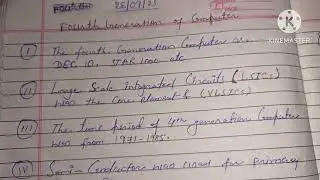 28/09/21
Fourth Generation of Computer
K
KINEMASTER
I The fourth Generation Computer are
DEC 10, STAR 1000 etc
II Large Scale Integrated Circuits (LSICs)
was the Core element & (VLSICs)
III The time period of 4th generation Computer
was from 1971-1985.
IV Semi-Conductor was used for primary